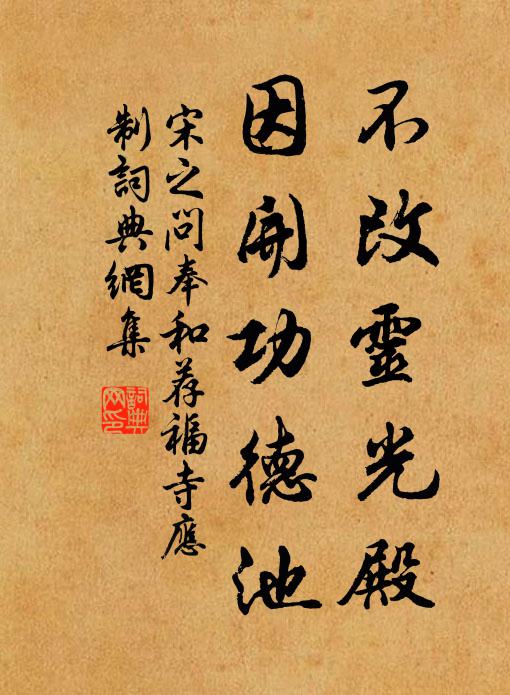 不改靈光殿
因開功德池
宋之問奉和荐福寺應
制詞典網集
詞典
网印